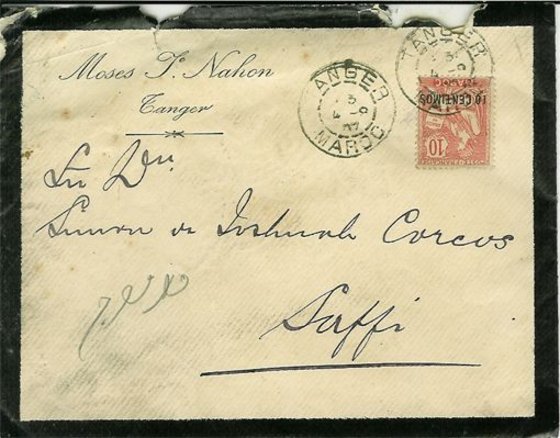 Moses J. Nahon
Tanger
TANGER
MAROC
TANGER
MAROC
10 CENTIMOS
10
Sr Dn
Simon de Joshuah Corcos
Saffi